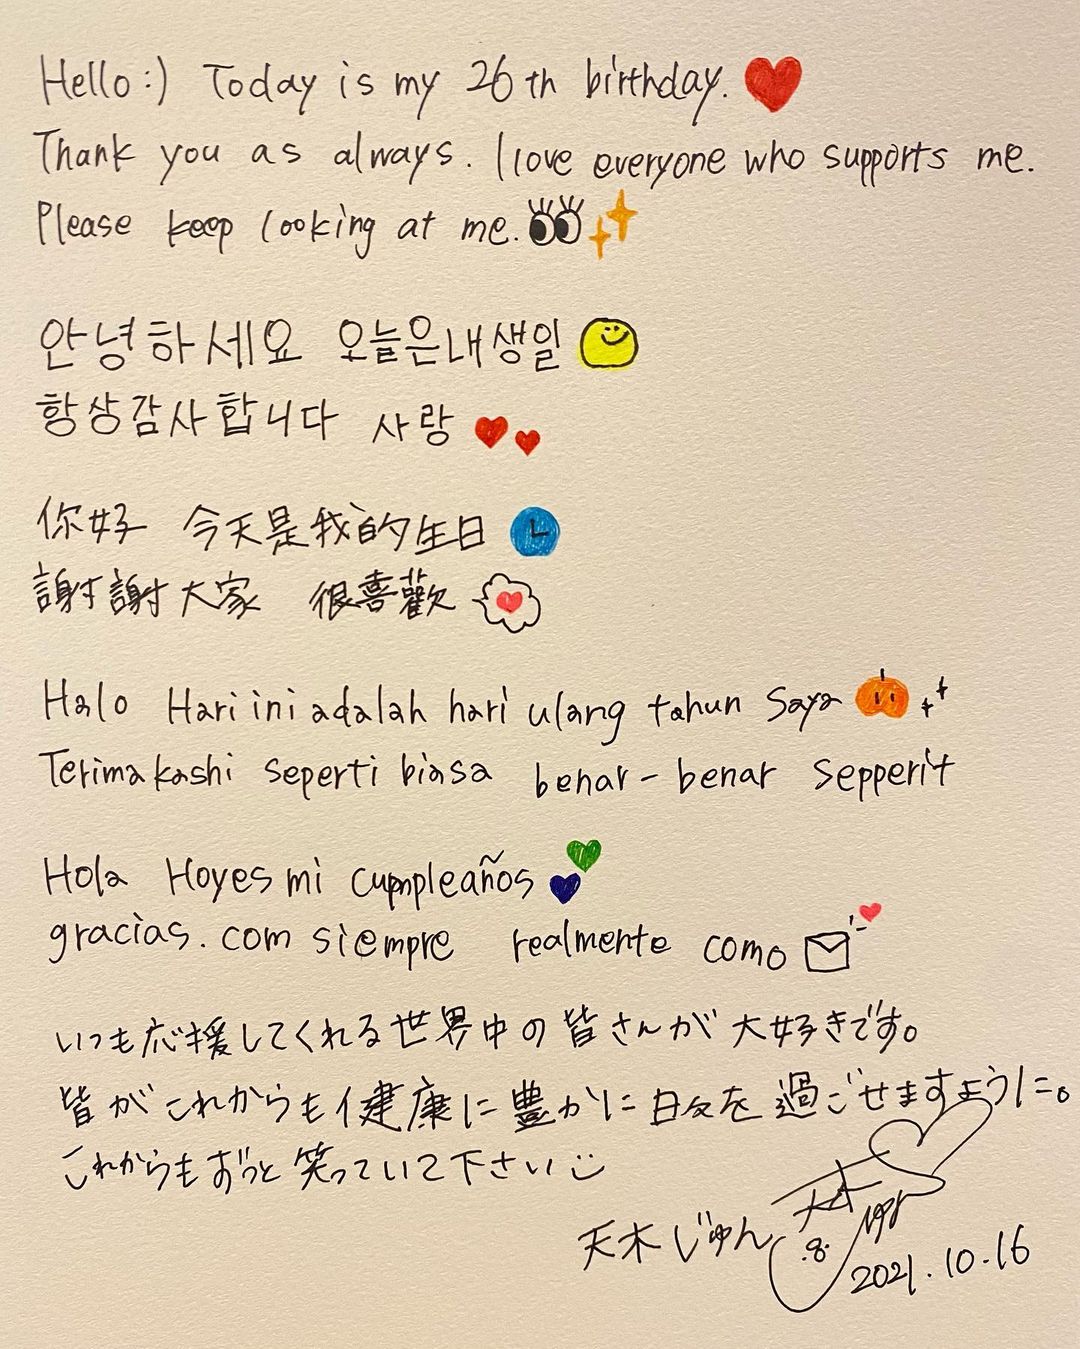 Hello:) Today is my 26th birthday.
Thank you as always. I love everyone who supports me.
Please keep looking at me.
안녕하세요 오늘은내생일
항상감사합니다 사랑
你好 今天是我的生日
謝謝大家 很喜歡
Halo Hari ini adalah hari ulang tahun Saya
Terima kashi seperti biasa benar-benar sepperit
Hola Hoyes mi cumpleaños
gracias. com siempre realmente como
いつも応援してくれる世界中の皆さんが大好きです。
皆がこれからも健康に豊かに日々を過ごせますように。
これからもずっと笑っていて下さい
天木じゅん
2021.10.16